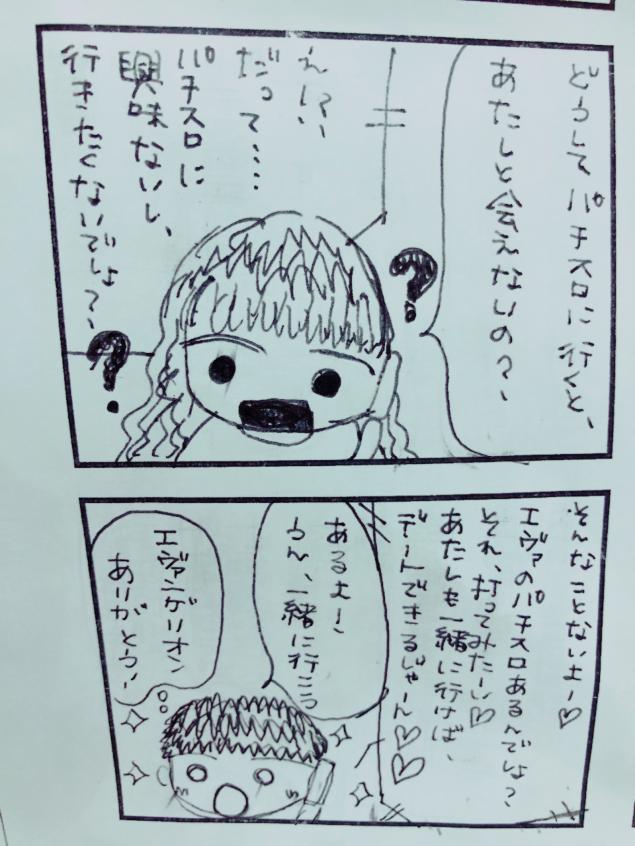 どうしてパチスロに行くと、
あたしと会えないの?、
え!?、
だって・・・・
パチスロに
興味ないし、
行きたくないでしょ?、
?
?
そんなことないよー♡
エヴァのパチスロあるんでしょ?
それ、打ってみたーい♡
あたしも一緒に行けば、
デートできるじゃーん♡♡
あるよー!
うん、一緒に行こう
エヴァンゲリオン
ありがとう、